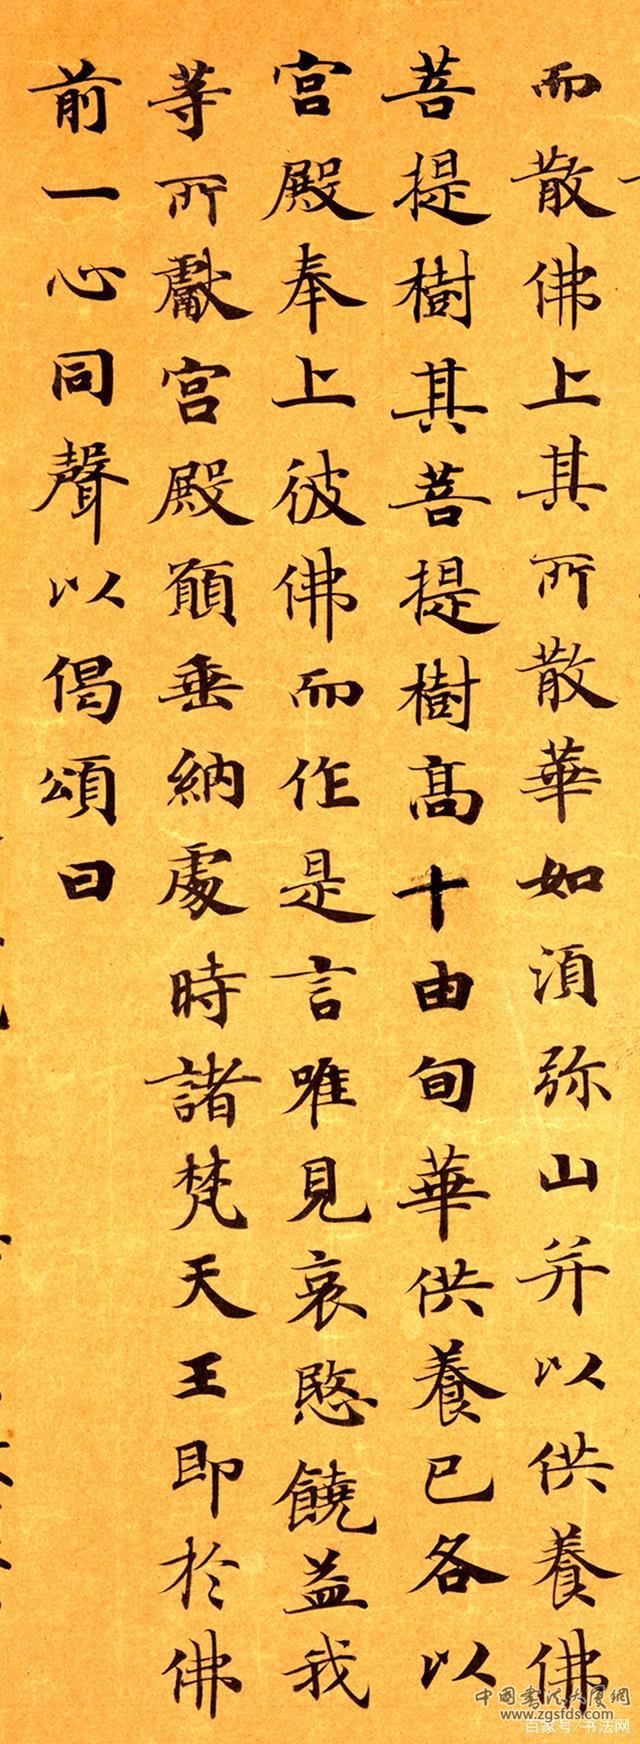 而散佛上其所散華如須弥山并以供養佛
菩提樹其菩提樹高十由旬華供養已各以
宮殿奉上彼佛而作是言唯見哀愍饒益我
等所獻宮殿願垂納處時諸梵天王即於佛
前一心同聲以偈頌曰
中國書法大厦網
www.zgsfds.com
百家号/书法网